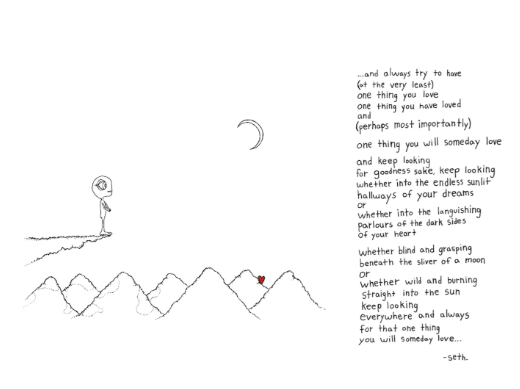 ...and always try to have
(at the very least)
one thing you love
one thing you have loved
and
(perhaps most importantly)
one thing you will someday love
and keep looking
for goodness sake, keep looking
whether into the endless sunlit
hallways of your dreams
or
whether into the languishing
parlours of the dark sides
of your heart
whether blind and grasping
beneath the sliver of a moon
or
whether wild and burning
straight into the sun
keep looking
everywhere and always
for that one thing
you will someday love...
-seth.